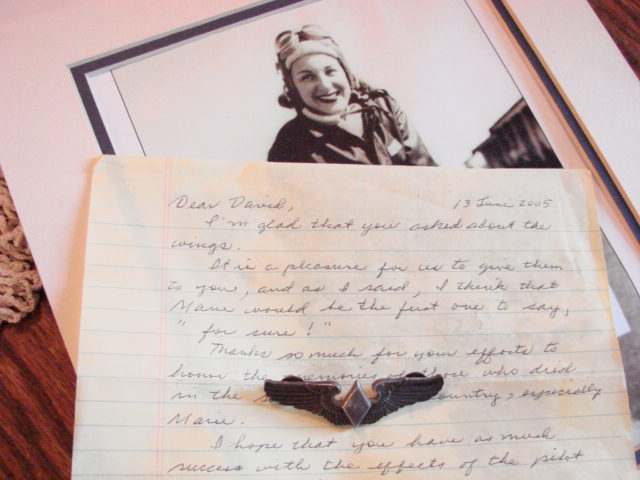 Dear David, 13 June 2005
I'm glad that you asked about the
wings.
It is a pleasure for us to give them
to you, and as I said, I think that
Marie would be the first one to say,
" for sure!"
Thanks so much for your efforts to
honor the memories of those who died
in the country, especially
Marie.
I hope that you have as much
success with the effects of the pilot